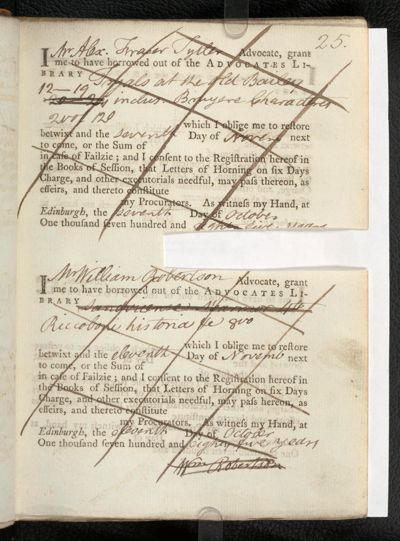 25.
I Mr Alex. Fraser Tytler Advocate, grant
me to have borrowed out of the ADVOCATES LI-
BRARY Tryals at the Old Bailey
12—19 inclus. Bruyere Characteres
2 vol 120
which I oblige me to reſtore
betwixt and the Seventh Day of Novem next
to come, or the Sum of
in caſe of Failzie; and I conſent to the Regiſtration hereof in
the Books of Seſſion, that Letters of Horning on ſix Days
Charge, and other executorials needful, may paſs thereon, as
effeirs, and thereto conſtitute
my Procurators. As witneſs my Hand, at
Edinburgh, the Seventh Day of October
One thouſand ſeven hundred and eighty five years
I Mr William Robertson Advocate, grant
me to have borrowed out of the ADVOCATES LI-
BRARY
Riccoboni historia &c 8vo
which I oblige me to reſtore
betwixt and the eleventh Day of Novem next
to come, or the Sum of
in caſe of Failzie; and I conſent to the Regiſtration hereof in
the Books of Seſſion, that Letters of Horning on ſix Days
Charge, and other executorials needful, may paſs hereon, as
effeirs, and thereto conſtitute
my Procurators. As witneſs my Hand, at
Edinburgh, the eleventh Day of October
One thouſand ſeven hundred and eighty five years
Wm Robertson